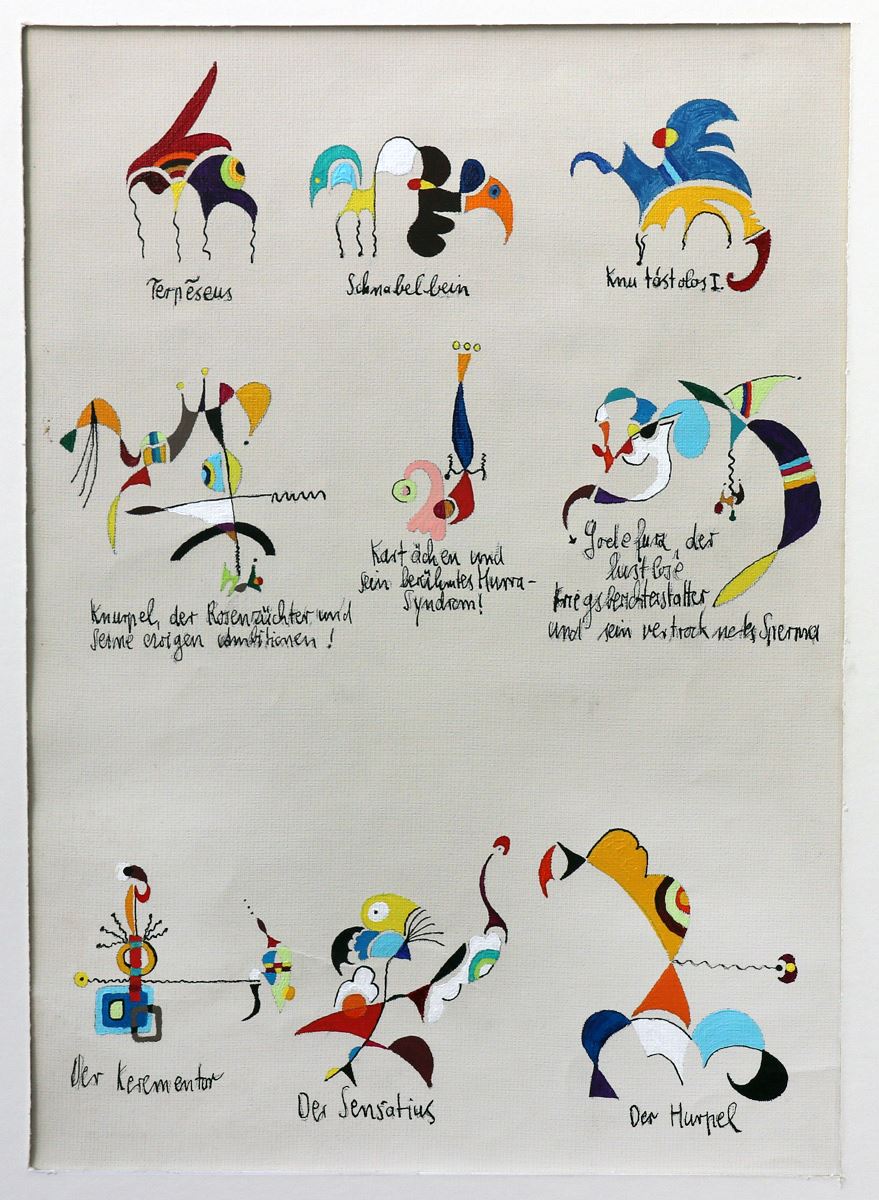 Terpēseus
Schnabelbein
Knu tóstolos I.
Knurpel, der Rosenzüchter und
seine erolgen Ambitionen !
Kartächen und
sein berühmtes Hurra-
Syndrom!
Godefura, der
lustlose
Kriegsberichterstatter
und sein vertrocknetes Sperma
Der Kerementor
Der Sensatius
Der Hurpel